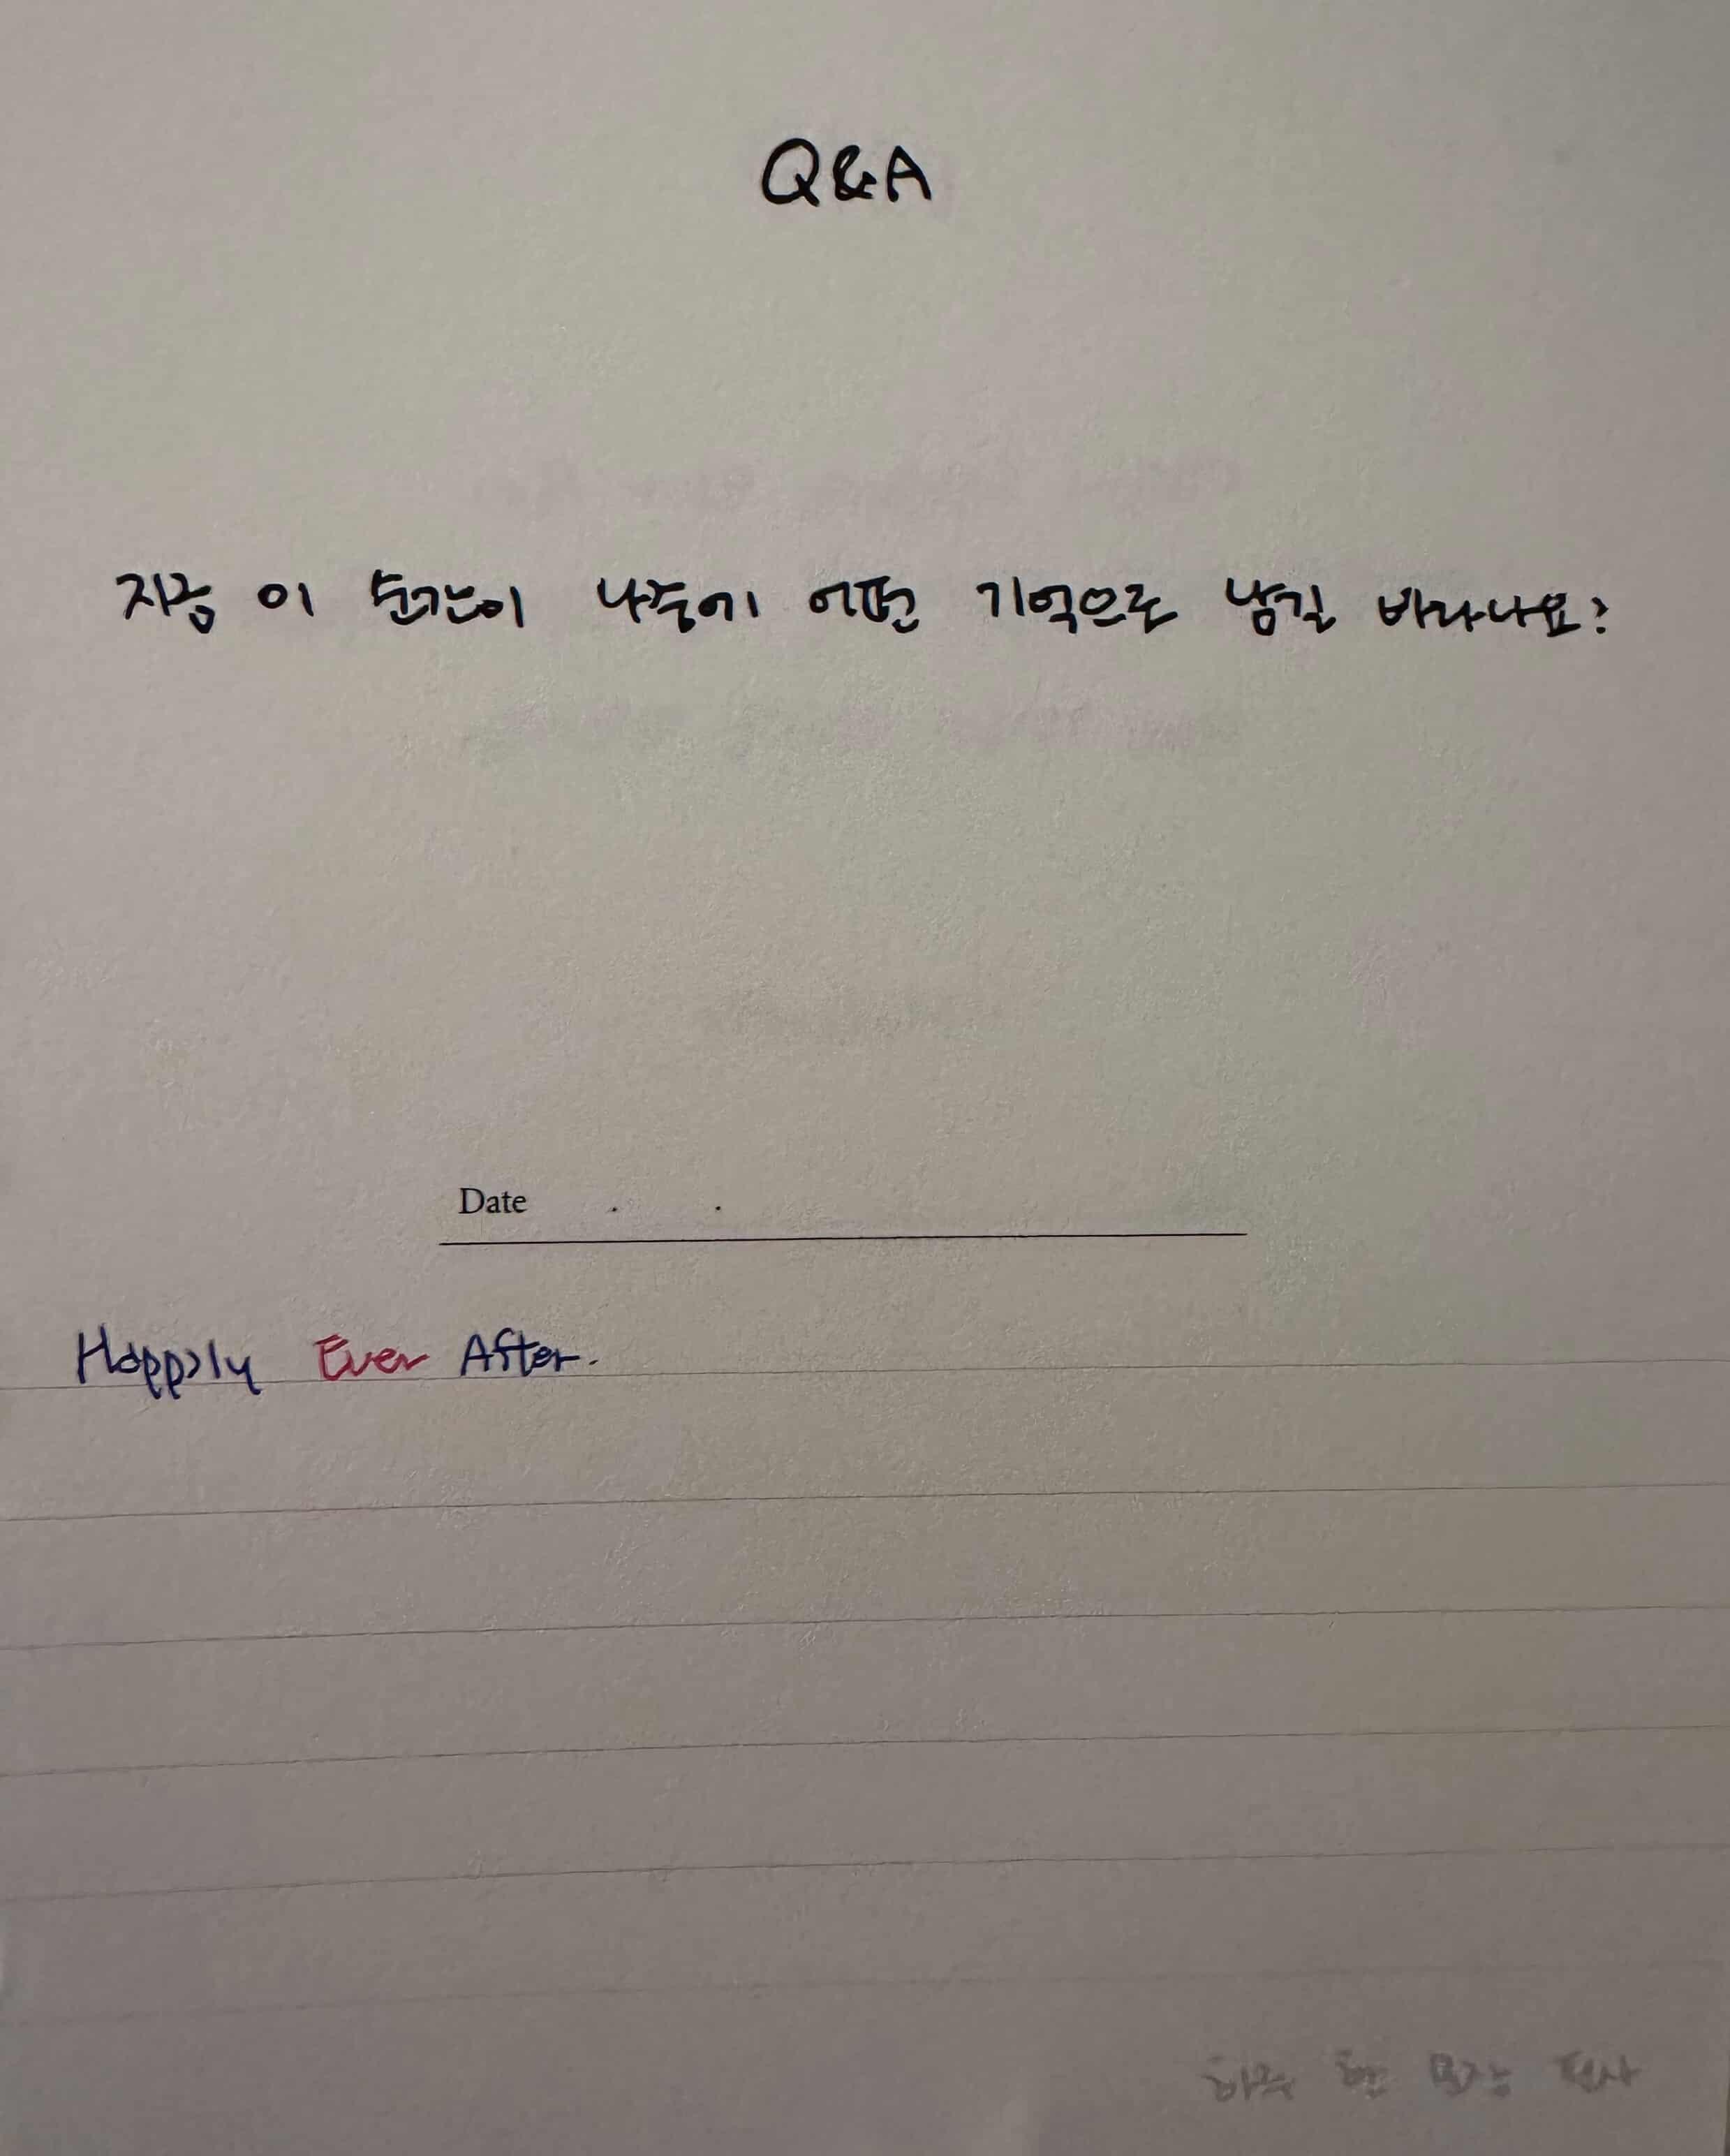 Q&A
지금 이 순간이 나중에 어떤 기억으로 남길 바라나요?
Date . .
Happily Ever After.
하루 한 문장 필사